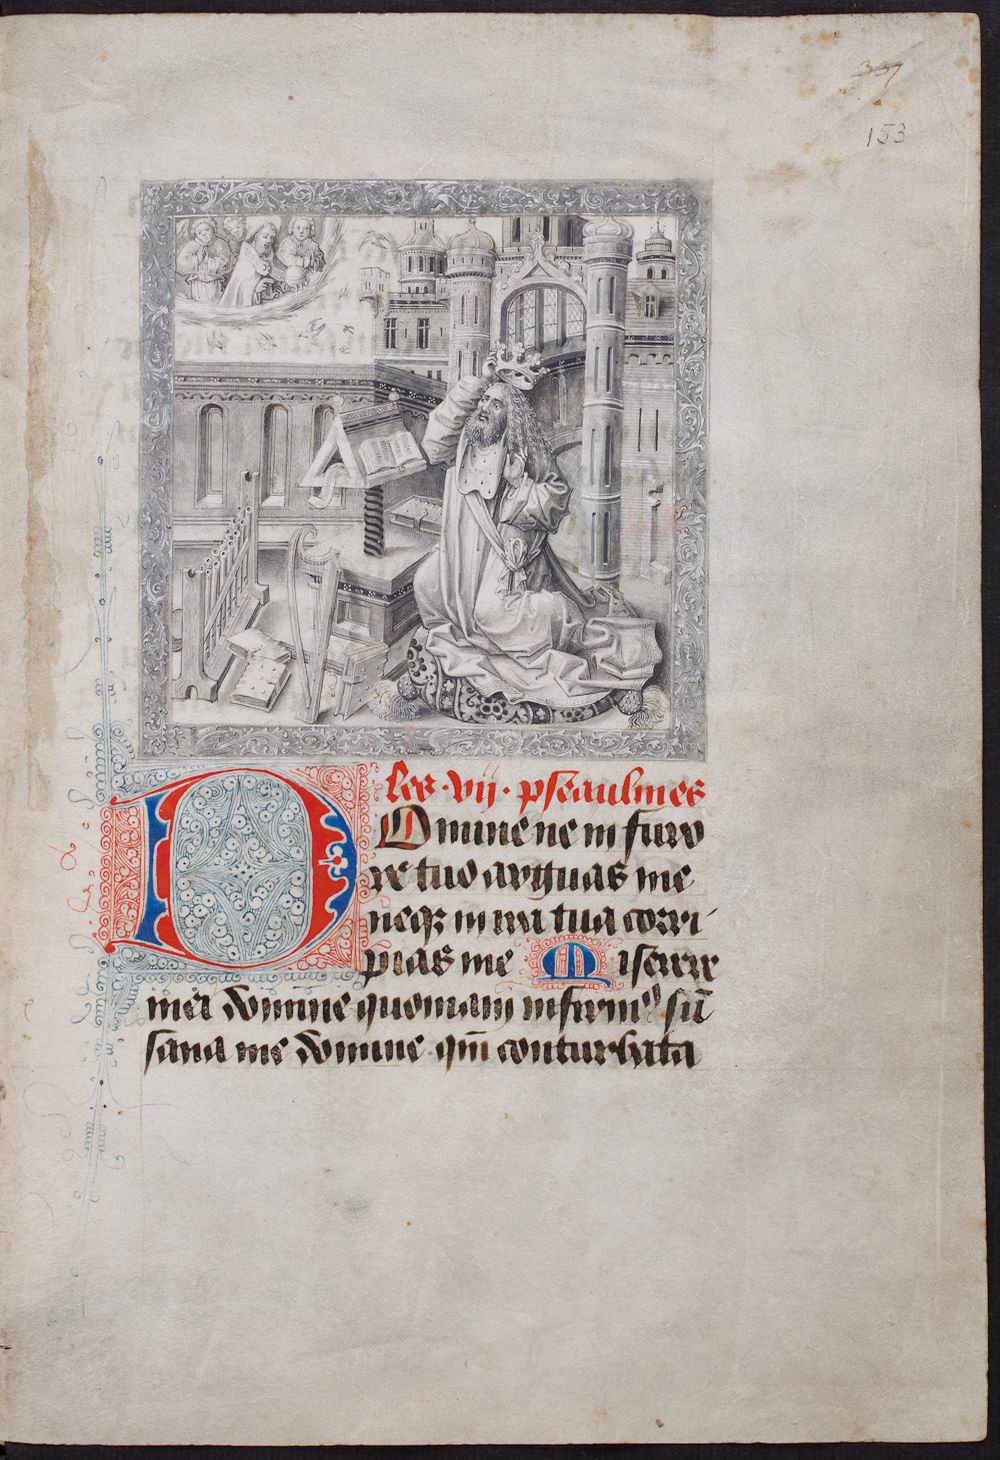 337
153
les · vij · pseaulmes
Domine ne in furo
re tuo arguas me
neq in ira tua corri
pias me Miserere
mei domine quoniam infirm9 sū
sana me domine qm̄ conturbata